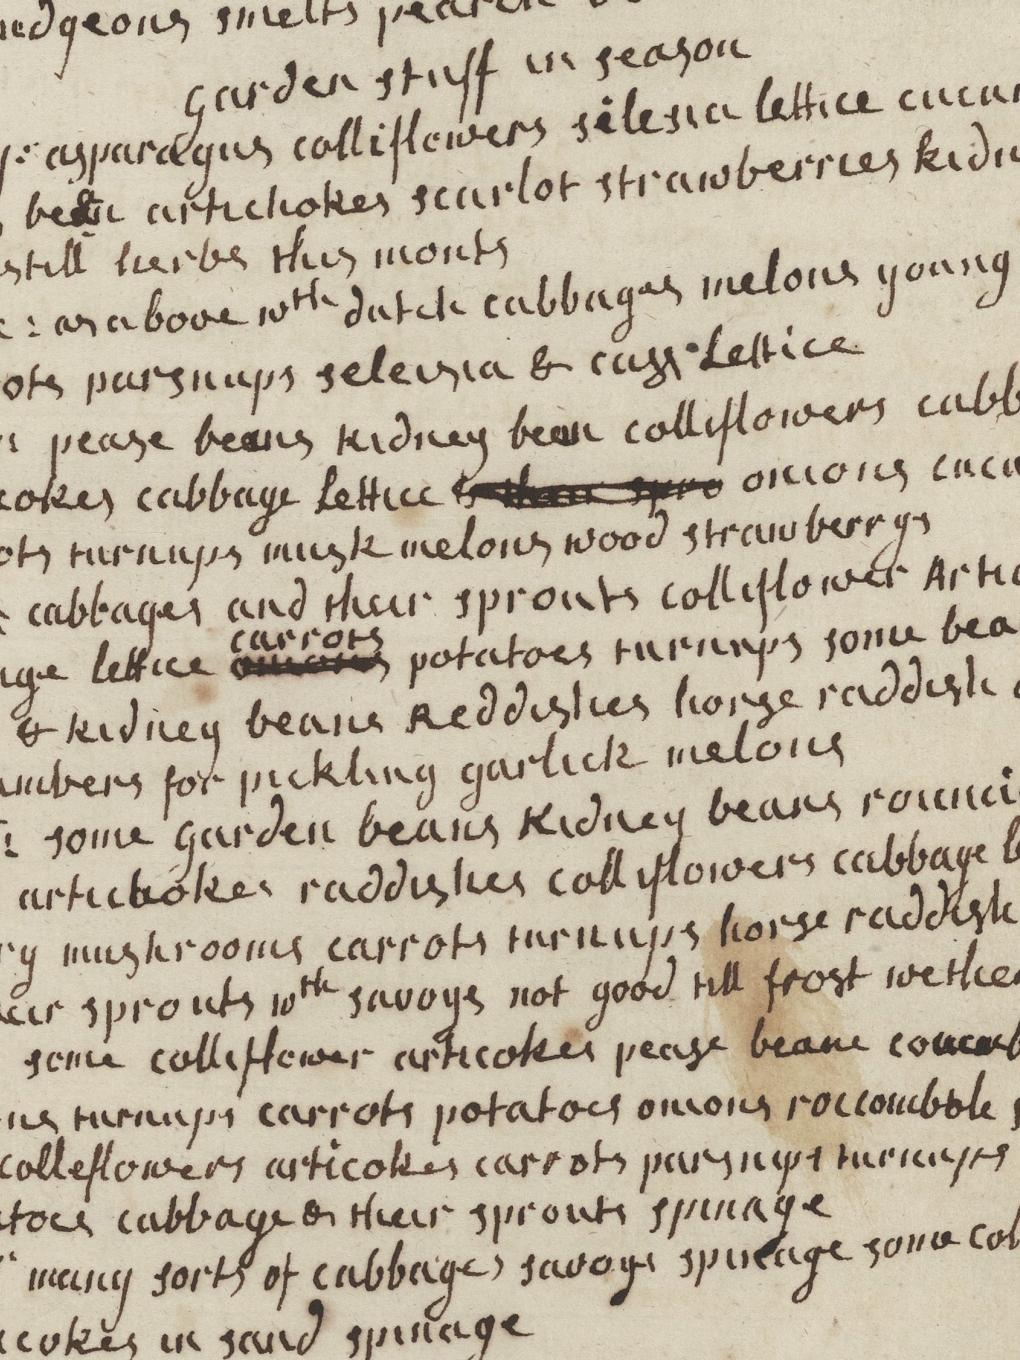 smelts
garden stuff in season
asparagus colliflowers silesia lettice
been artichokes scarlot strawberries
still herbs this monts
: as aboove wth dutch cabbages melons young
parsnups seleisia & cass lettice
pease beans kidney bean colliflowers
cabbage lettice onions
turnups musk melons wood strawberrys
cabbages and their sprouts colliflower
lettice carrots potatoes turnups some
& kidney beans Reddishes horse raddish
for pickling garlick melons
some garden beans Kidney beans
artichokes raddishes colliflowers cabbage
mushrooms carrots turnups horse raddish
sprouts wth savoys not good till frost
some colliflower articokes pease beane
turnups carrots potatoes onions roccombole
colleflowers articokes carrots parsnips turnups
cabbage & their sprouts spinage
many sorts of cabbages savoys spineage some
in sand spinage